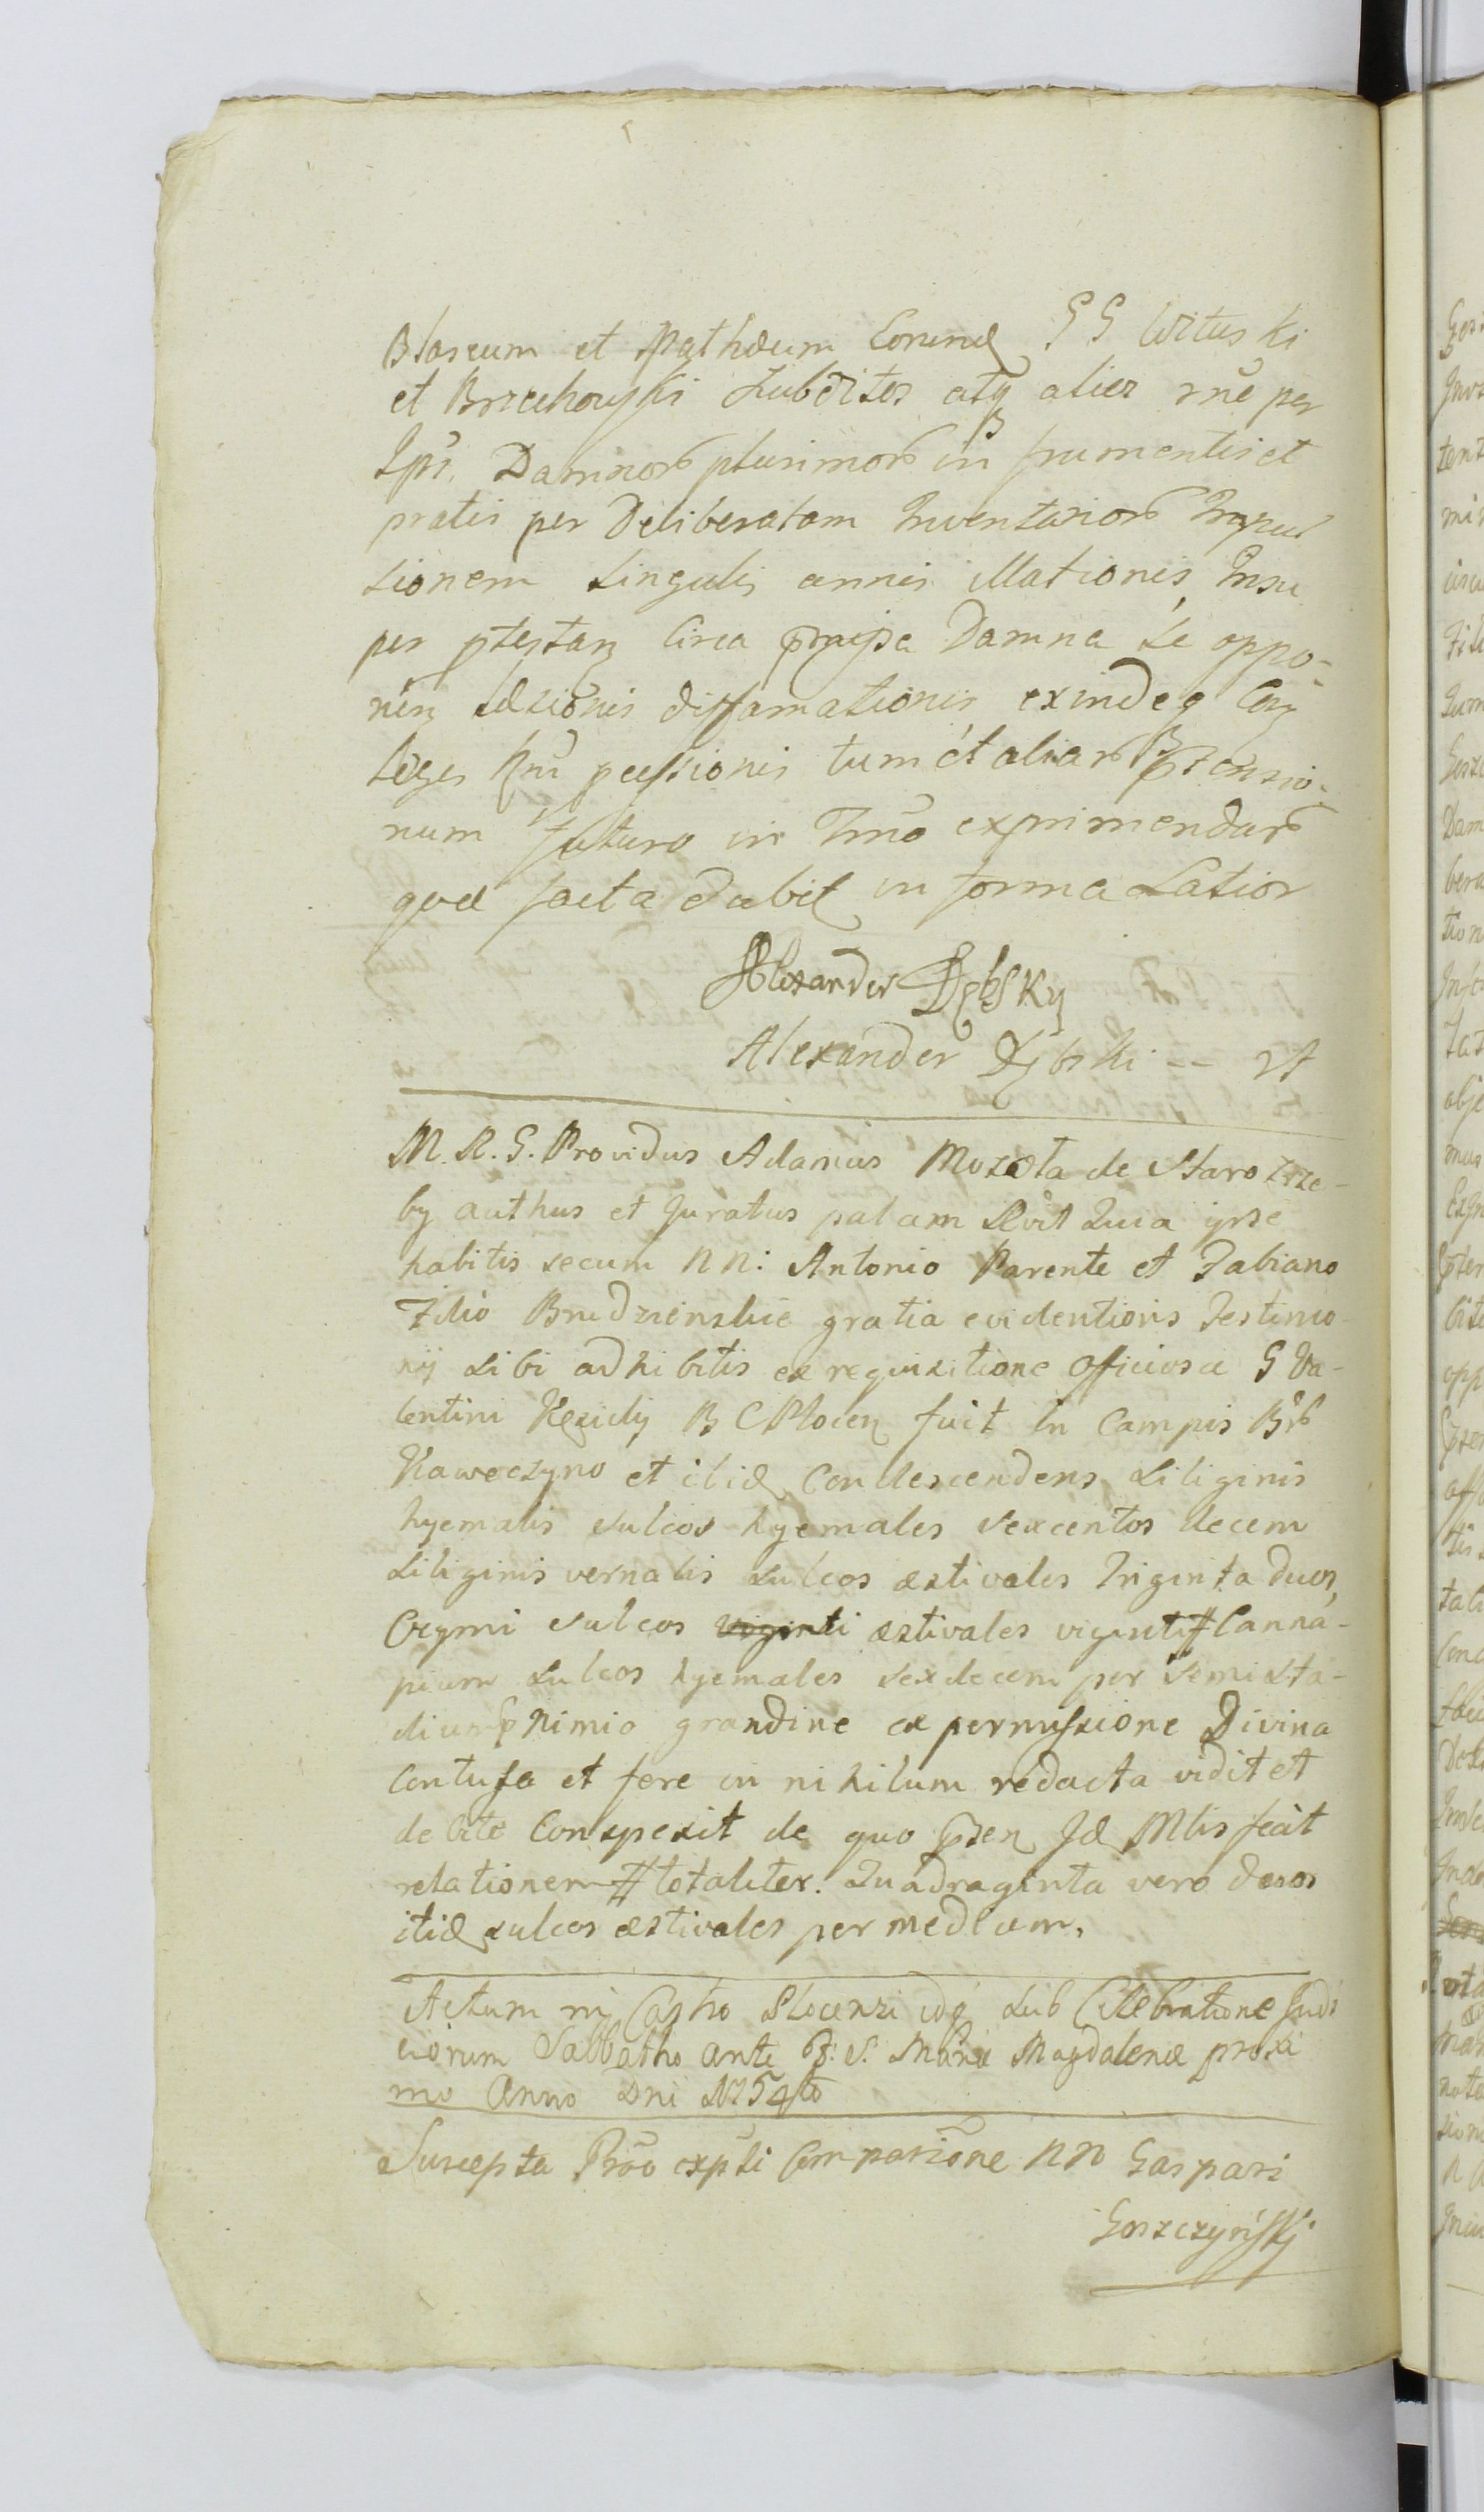 Blaseum et Mathæum Eorund GG Wituski
et Brzechowski Subditos atq alios rne per
Ipsos Damnor plurimor in frumentis et
pratis per Deliberatam Inventarior Impul
sionem singulis annis illationis, Insu
per ptestan Circa præmissa Damna se oppo-
nen læsionis diffamationis exindeq Con
leges pcessionis tum et aliar ptensio-
num futuro in Tmno exprimendar
quæ facta dabit in forma Latior
Alexander Dębsky
Alexander Dębski -- st
M. R. G. Providus Adamus Mozeta de Staro zrze-
by authus et Juratus palam Rvit Quia ipse
habitis secum NN: Antonio Parente et Fabiano
Filio Brudzienskie gratia evidentioris Testimo-
nij sibi adhibitis ex requisitione officiosa G Va-
lentini B C Plocen fuit in Campis Br
Kaweczyno et ibid Condescendens Siliginis
hyemalis sulcos hyemales sexcentos decem
Siliginis vernalis sulcos æstivales Triginta duos,
Ocymi sulcos viginti æstivales viginti # Canna-
pium sulcos hyemales sexdecem per semista-
dium p Nimio grandine ex permissione Divina
Contusa et fere in nihilum redacta vidit et
debite Conspexit de quo psen Id Mlis fecit
relationem # totaliter. Quadraginta vero duos
itid sulcos æstivales per medium.
Actum in Castro Plocensi idq sub Celebratione Judi
ciorum Sabbatho ante F. S. Mariæ Magdalenæ proxi
mo Anno Dni 1754to
Suscepta Pro expti Comparitione NN Gaspari
Goszczyński